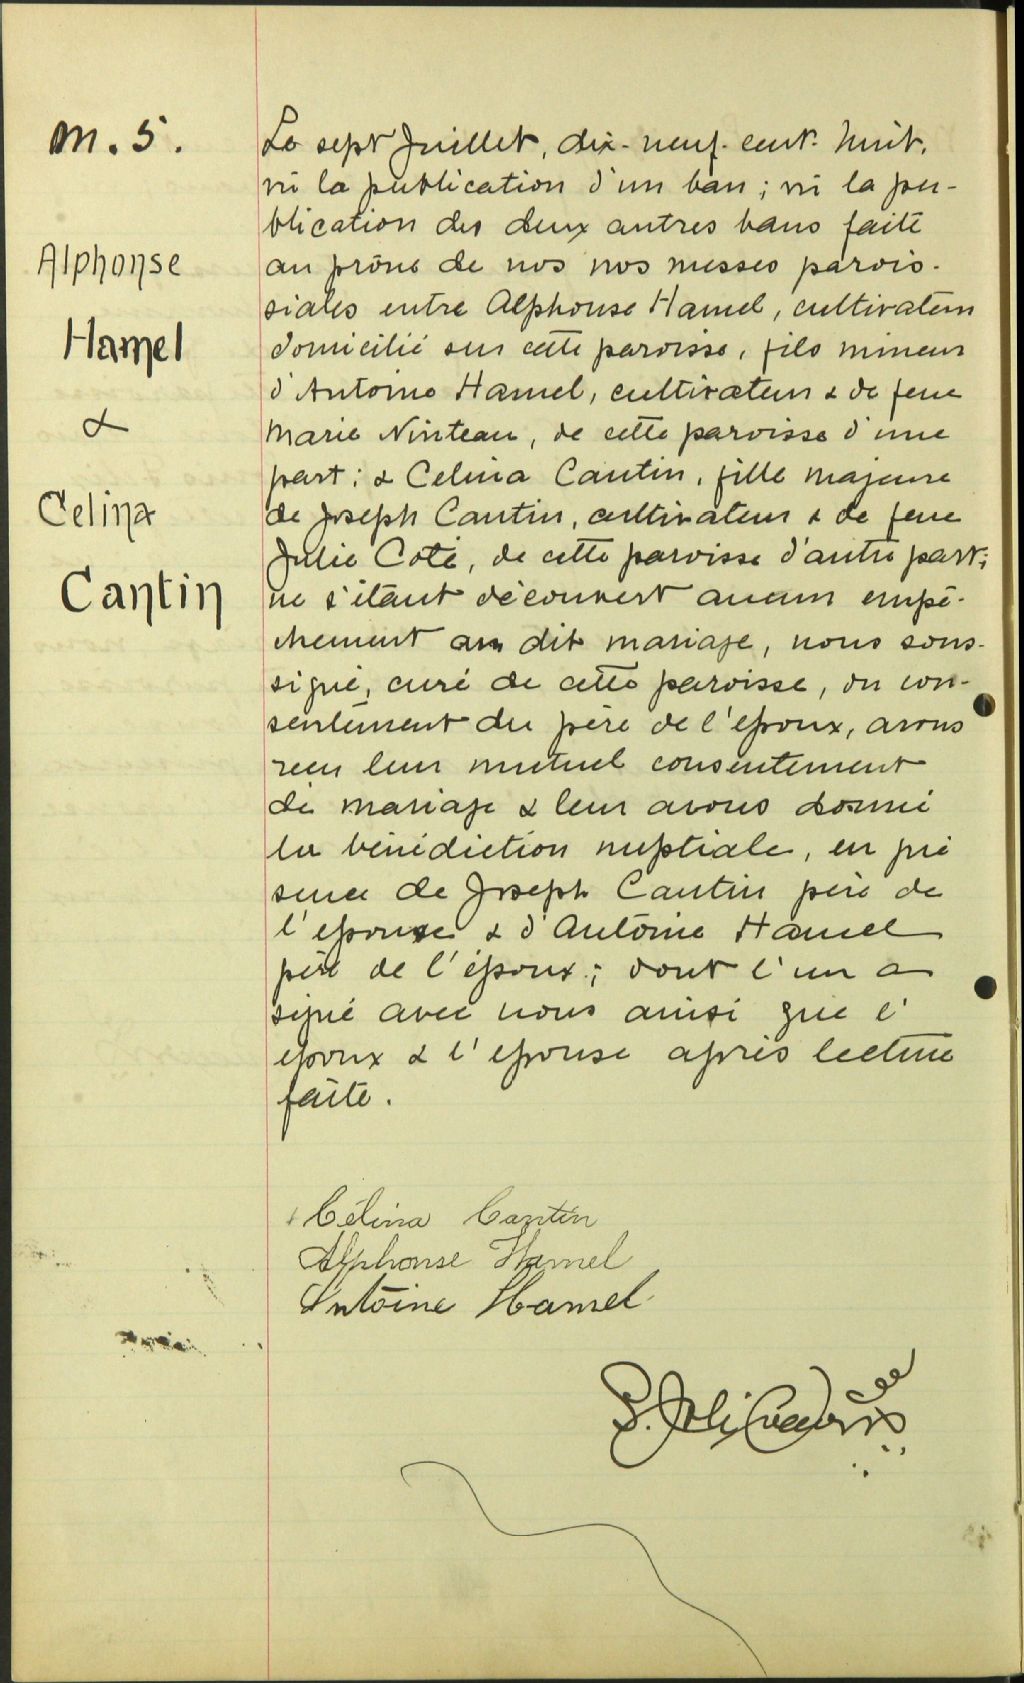 M. 5.
Alphonse
Hamel
&
Celina
Cantin
Le sept Juillet, dix-neuf-cent-huit,
vu la publication d'un ban ; vu la pu-
blication des deux autres bans faite
au prône de nos nos messes parois-
siales entre Alphonse Hamel, cultivateur
domicilié sur cette paroisse, fils mineur
d'Antoine Hamel, cultivateur & de feue
Marie Ninteau, de cette paroisse d'une
part ; & Celina Cantin, fille majeure
de Joseph Cantin, cultivateur & de feue
Julie Coté, de cette paroisse d'autre part ;
ne s'étant découvert aucun empê-
chement au dit mariage, nous sous-
signé, curé de cette paroisse, du con-
sentement du père de l'époux, avons
reçu leur mutuel consentement
de mariage & leur avons donné
la bénédiction nuptiale, en pré
sence de Joseph Cantin père de
l'épouse & d'Antoine Hamel
père de l'époux ; dont l'un a
signé avec nous ainsi que l'
époux & l'épouse après lecture
faite.
Célina Cantin
Alphonse Hamel
Antoine Hamel
S. JoliCoeur